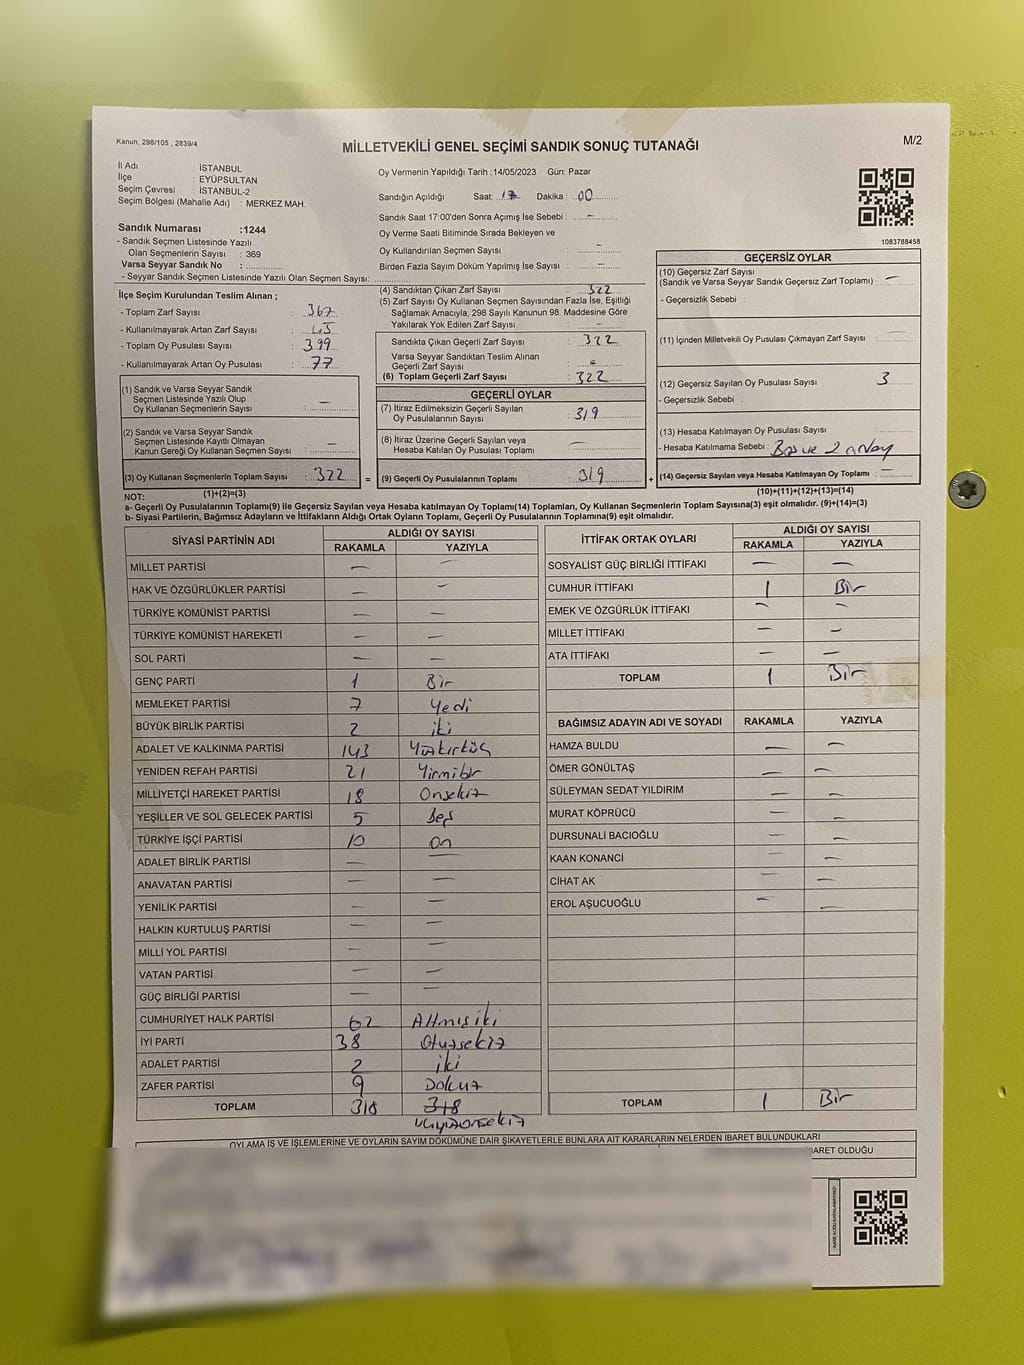 Kanun; 298/105 , 2839/4
MİLLETVEKİLİ GENEL SEÇİMİ SANDIK SONUÇ TUTANAĞI
M/2
İl Adı : İSTANBUL
İlçe : EYÜPSULTAN
Seçim Çevresi : İSTANBUL-2
Seçim Bölgesi (Mahalle Adı) : MERKEZ MAH.
Sandık Numarası :1244
- Sandık Seçmen Listesinde Yazılı
Olan Seçmenlerin Sayısı : 369
Varsa Seyyar Sandık No :
- Seyyar Sandık Seçmen Listesinde Yazılı Olan Seçmen Sayısı:
İlçe Seçim Kurulundan Teslim Alınan ;
- Toplam Zarf Sayısı : 367
- Kullanılmayarak Artan Zarf Sayısı : 45
- Toplam Oy Pusulası Sayısı : 399
- Kullanılmayarak Artan Oy Pusulası : 77
(1) Sandık ve Varsa Seyyar Sandık
Seçmen Listesinde Yazılı Olup
Oy Kullanan Seçmenlerin Sayısı : –
(2) Sandık ve Varsa Seyyar Sandık
Seçmen Listesinde Kayıtlı Olmayan
Kanun Gereği Oy Kullanan Seçmen Sayısı : –
(3) Oy Kullanan Seçmenlerin Toplam Sayısı : 322
(1)+(2)=(3)
Oy Vermenin Yapıldığı Tarih :14/05/2023 Gün: Pazar
Sandığın Açıldığı Saat: 17 Dakika : 00
Sandık Saat 17:00'den Sonra Açımış İse Sebebi : –
Oy Verme Saati Bitiminde Sırada Bekleyen ve
Oy Kullandırılan Seçmen Sayısı : –
Birden Fazla Sayım Döküm Yapılmış İse Sayısı : –
(4) Sandıktan Çıkan Zarf Sayısı : 322
(5) Zarf Sayısı Oy Kullanan Seçmen Sayısından Fazla İse, Eşitliği
Sağlamak Amacıyla, 298 Sayılı Kanunun 98. Maddesine Göre
Yakılarak Yok Edilen Zarf Sayısı : –
Sandıkta Çıkan Geçerli Zarf Sayısı : 322
Varsa Seyyar Sandıktan Teslim Alınan
Geçerli Zarf Sayısı :
(6) Toplam Geçerli Zarf Sayısı : 322
GEÇERLİ OYLAR
(7) İtiraz Edilmeksizin Geçerli Sayılan
Oy Pusulalarının Sayısı : 319
(8) İtiraz Üzerine Geçerli Sayılan veya
Hesaba Katılan Oy Pusulası Toplamı : –
= (9) Geçerli Oy Pusulalarının Toplamı : 319 +
1083788458
GEÇERSİZ OYLAR
(10) Geçersiz Zarf Sayısı
(Sandık ve Varsa Seyyar Sandık Geçersiz Zarf Toplamı) : –
- Geçersizlik Sebebi :
(11) İçinden Milletvekili Oy Pusulası Çıkmayan Zarf Sayısı :
(12) Geçersiz Sayılan Oy Pusulası Sayısı : 3
- Geçersizlik Sebebi :
(13) Hesaba Katılmayan Oy Pusulası Sayısı :
- Hesaba Katılmama Sebebi : Boş ve 2 
(14) Geçersiz Sayılan veya Hesaba Katılmayan Oy Toplamı : –
(10)+(11)+(12)+(13)=(14)
NOT:
a- Geçerli Oy Pusulalarının Toplamı(9) ile Geçersiz Sayılan veya Hesaba katılmayan Oy Toplamı(14) Toplamları, Oy Kullanan Seçmenlerin Toplam Sayısına(3) eşit olmalıdır. (9)+(14)=(3)
b- Siyasi Partilerin, Bağımsız Adayların ve İttifakların Aldığı Ortak Oyların Toplamı, Geçerli Oy Pusulalarının Toplamına(9) eşit olmalıdır.
SİYASİ PARTİNİN ADI ALDIĞI OY SAYISI
RAKAMLA YAZIYLA
MİLLET PARTİSİ – –
HAK VE ÖZGÜRLÜKLER PARTİSİ – –
TÜRKİYE KOMÜNİST PARTİSİ – –
TÜRKİYE KOMÜNİST HAREKETİ – –
SOL PARTİ – –
GENÇ PARTİ 1 Bir
MEMLEKET PARTİSİ 7 Yedi
BÜYÜK BİRLİK PARTİSİ 2 iki
ADALET VE KALKINMA PARTİSİ 143 Yüzkırküç
YENİDEN REFAH PARTİSİ 21 Yirmibir
MİLLİYETÇİ HAREKET PARTİSİ 18 Onsekiz
YEŞİLLER VE SOL GELECEK PARTİSİ 5 Beş
TÜRKİYE İŞÇİ PARTİSİ 10 On
ADALET BİRLİK PARTİSİ – –
ANAVATAN PARTİSİ – –
YENİLİK PARTİSİ – –
HALKIN KURTULUŞ PARTİSİ – –
MİLLİ YOL PARTİSİ – –
VATAN PARTİSİ – –
GÜÇ BİRLİĞİ PARTİSİ – –
CUMHURİYET HALK PARTİSİ 62 Altmışiki
İYİ PARTİ 38 Otuzsekiz
ADALET PARTİSİ 2 iki
ZAFER PARTİSİ 9 Dokuz
TOPLAM 318 318
üçyüzonsekiz
İTTİFAK ORTAK OYLARI ALDIĞI OY SAYISI
RAKAMLA YAZIYLA
SOSYALİST GÜÇ BİRLİĞİ İTTİFAKI – –
CUMHUR İTTİFAKI 1 Bir
EMEK VE ÖZGÜRLÜK İTTİFAKI – –
MİLLET İTTİFAKI – –
ATA İTTİFAKI – –
TOPLAM 1 Bir
BAĞIMSIZ ADAYIN ADI VE SOYADI RAKAMLA YAZIYLA
HAMZA BULDU – –
ÖMER GÖNÜLTAŞ – –
SÜLEYMAN SEDAT YILDIRIM – –
MURAT KÖPRÜCÜ – –
DURSUNALİ BACIOĞLU – –
KAAN KONANCİ – –
CİHAT AK – –
EROL AŞUCUOĞLU – –
TOPLAM 1 Bir
OYLAMA İŞ VE İŞLEMLERİNE VE OYLARIN SAYIM DÖKÜMÜNE DAİR ŞİKAYETLERLE BUNLARA AİT KARARLARIN NELERDEN İBARET BULUNDUKLARI
BARET OLDUĞU